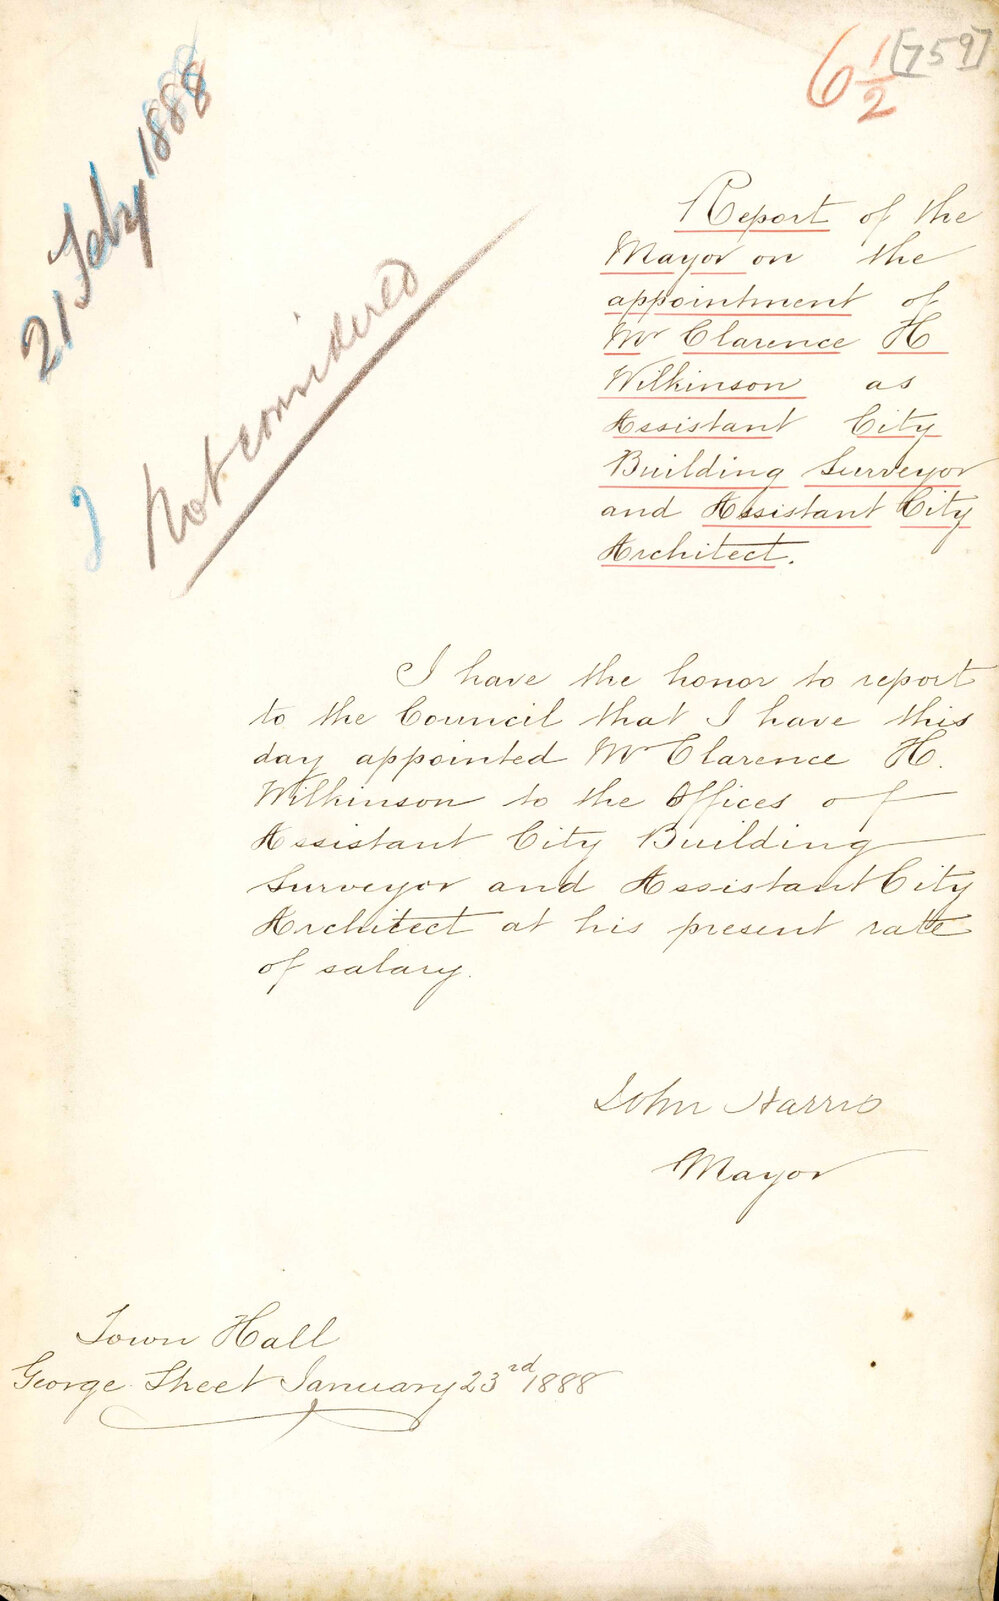 6 1/2 [759]
21 Feby 1888
Not considered
Report of the
Mayor on the
appointment of
Mr Clarence H
Wilkinson as
Assistant City
Building Surveyor
and Assistant City
Architect.
I have the honor to report
to the Council that I have this
day appointed Mr Clarence H.
Wilkinson to the Offices of
Assistant City Building
Surveyor and Assistant City
Architect at his present rate
of salary.
John Harris
Mayor
Town Hall
George Street January 23rd 1888